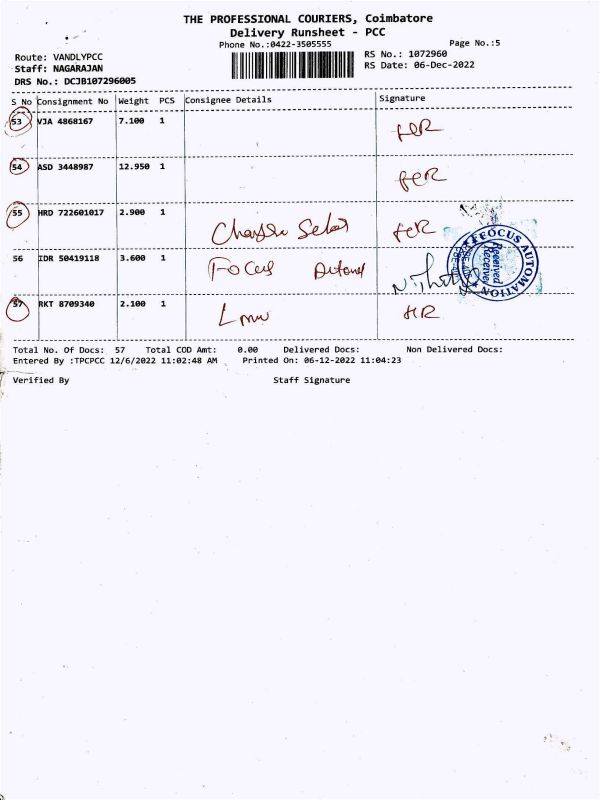 THE PROFESSIONAL COURIERS, Coimbatore
Delivery Runsheet - PCC
Phone No.:0422-3505555 Page No.:5
Route: VANDLYPCC RS No.: 1072960
Staff: NAGARAJAN RS Date: 06-Dec-2022
DRS No.: DCJB107296005
S No Consignment No Weight PCS Consignee Details Signature
53 VJA 4868167 7.100 1
54 ASD 3448987 12.950 1
55 HRD 722601017 2.900 1
56 IDR 50419118 3.600 1 Focus
FOCUS AUTOMATION
Received
57 RKT 8709340 2.100 1 Lmw
Total No. Of Docs: 57 Total COD Amt: 0.00 Delivered Docs: Non Delivered Docs:
Entered By :TPCPCC 12/6/2022 11:02:48 AM Printed On: 06-12-2022 11:04:23
Verified By Staff Signature